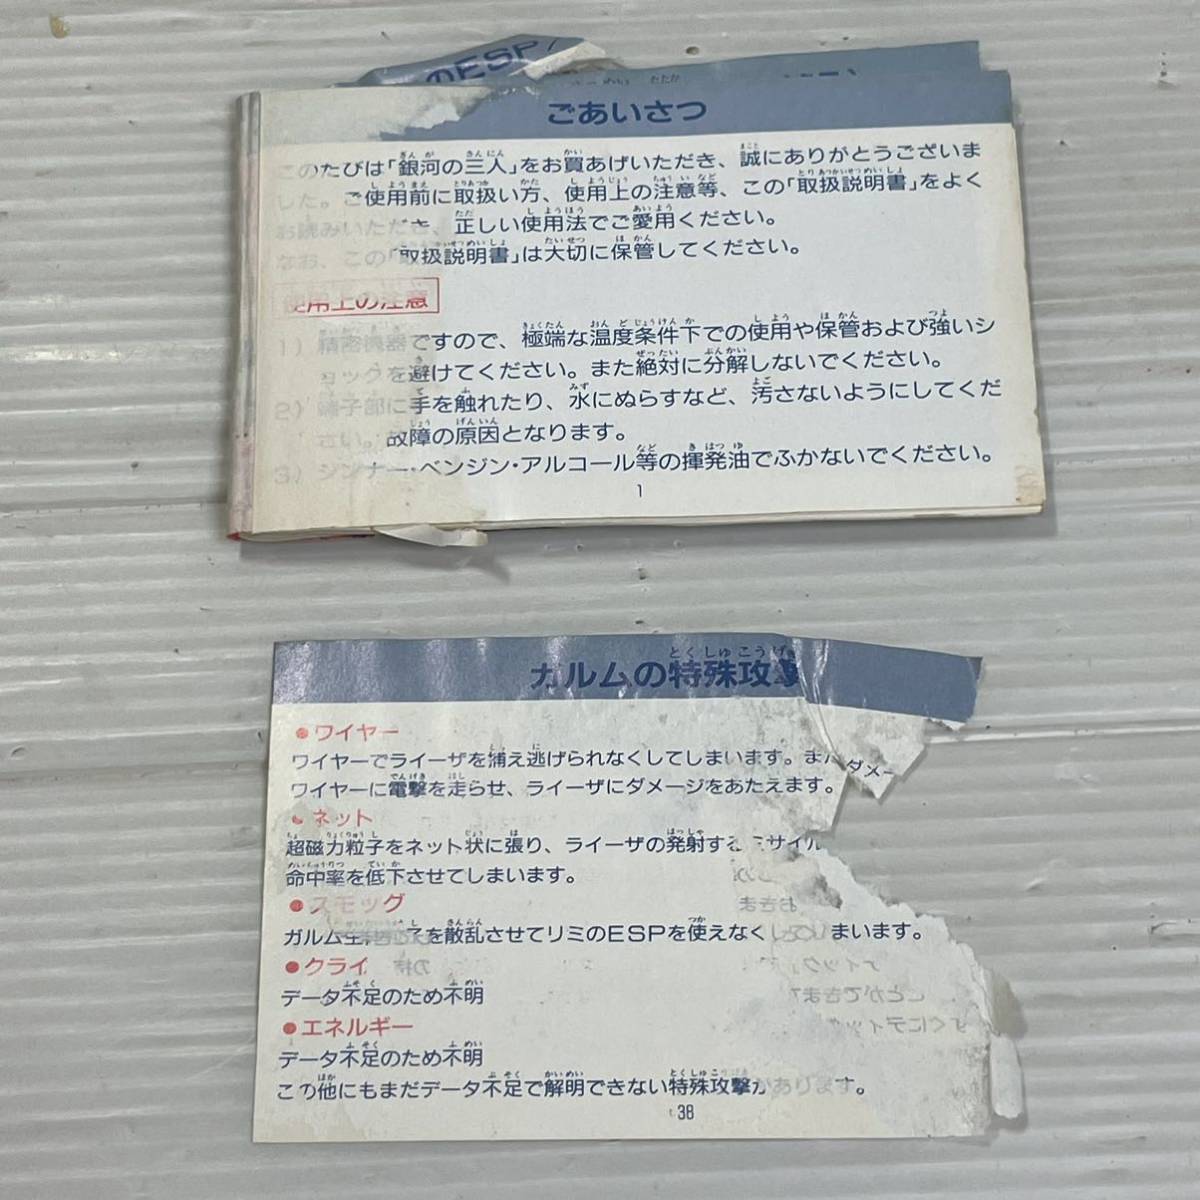 のESP
ごあいさつ
このたびは「銀河の三人」をお買あげいただき、誠にありがとうございま
した。ご使用前に取扱い方、使用上の注意等、この「取扱説明書」をよく
お読みいただき、正しい使用法でご愛用ください。
なお、この「取扱説明書」は大切に保管してください。
使用上の注意
1) 精密機器ですので、極端な温度条件下での使用や保管および強いシ
ョックを避けてください。また絶対に分解しないでください。
2) 端子部に手を触れたり、水にぬらすなど、汚さないようにしてくだ
さい。故障の原因となります。
3) シンナー・ベンジン・アルコール等の揮発油でふかないでください。
1
ガルムの特殊攻撃
●ワイヤー
ワイヤーでライーザを捕え逃げられなくしてしまいます。また ダメー
ワイヤーに電撃を走らせ、ライーザにダメージをあたえます。
●ネット
超磁力粒子をネット状に張り、ライーザの発射するミサイル
命中率を低下させてしまいます。
●スモッグ
ガルム 子を散乱させてリミのESPを使えなくしてしまいます。
●クライ
データ不足のため不明
●エネルギー
データ不足のため不明
この他にもまだデータ不足で解明できない特殊攻撃があります。
38